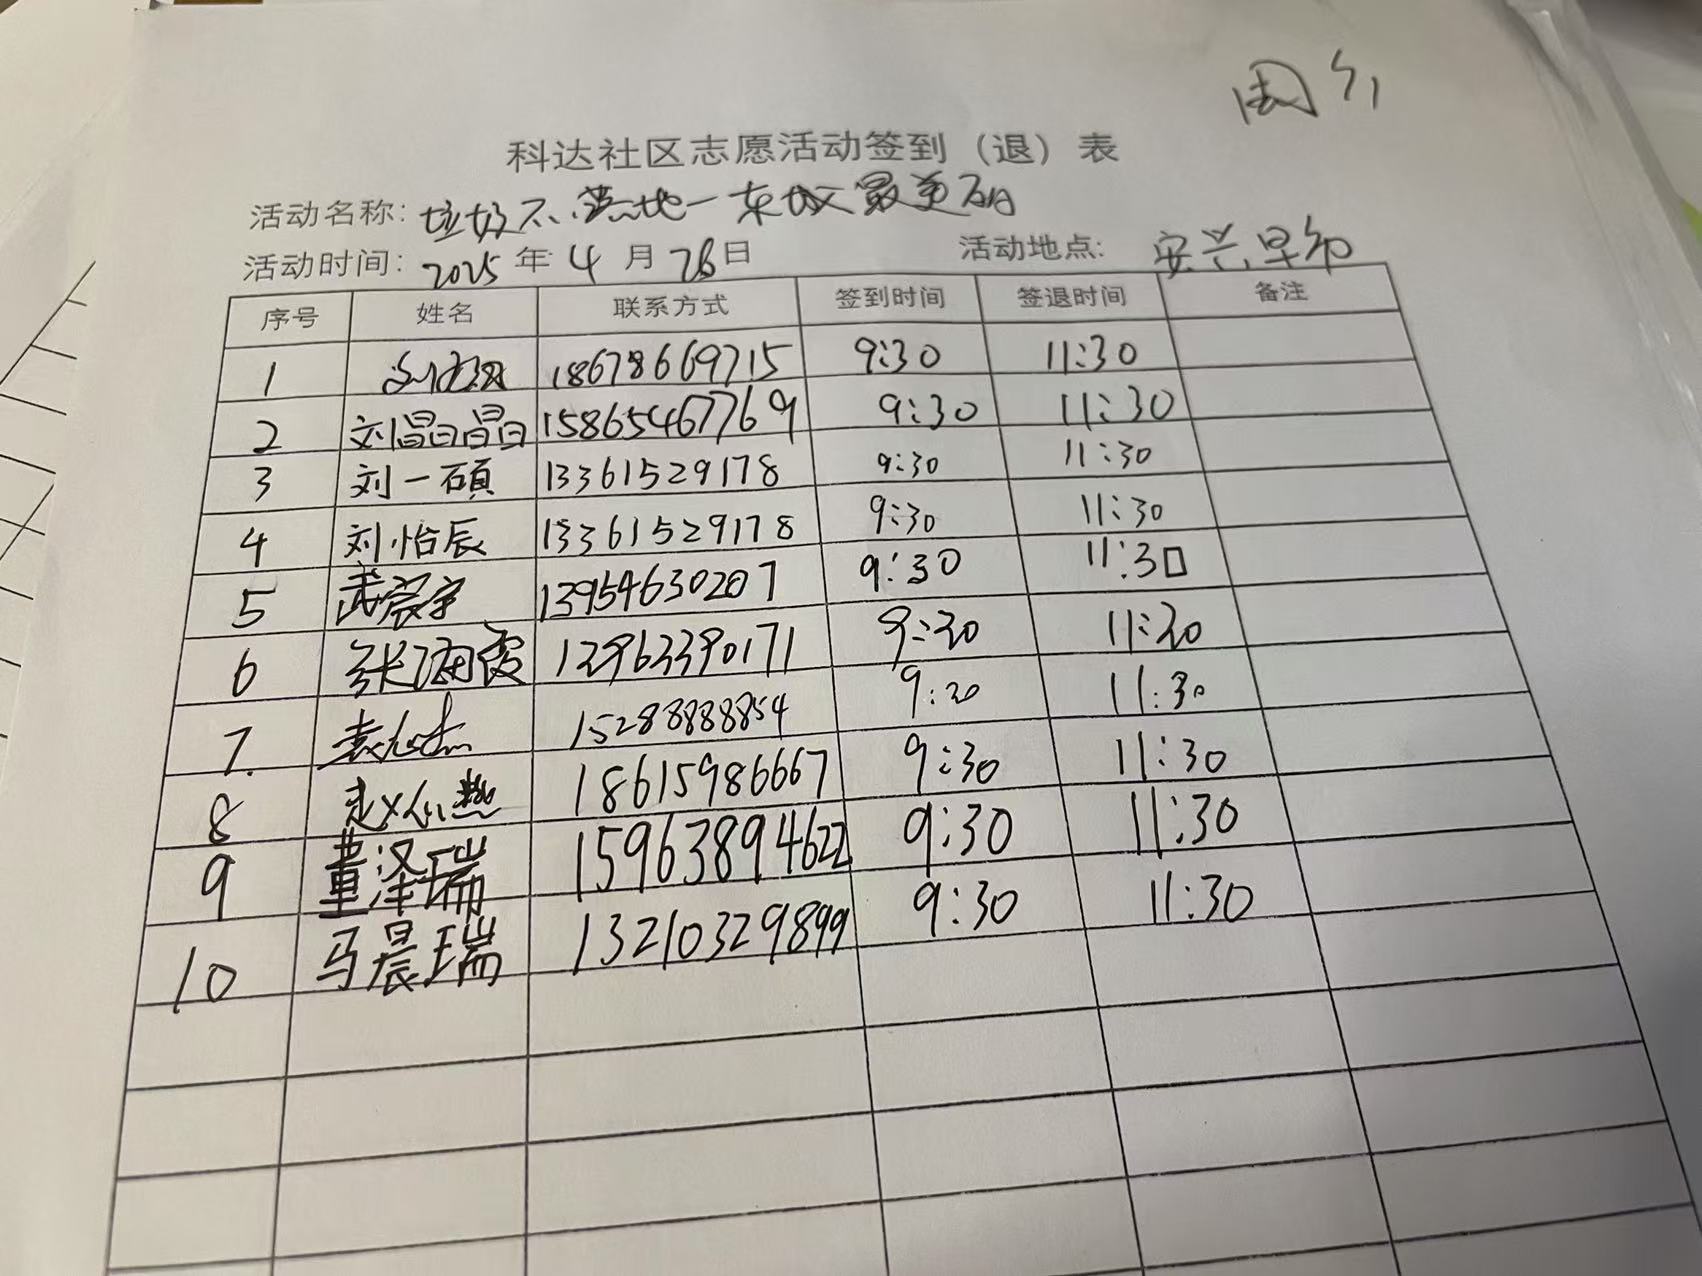 科达社区志愿活动签到（退）表
活动名称：垃圾不落地一东城最美丽
活动时间：2025年4月26日 活动地点：安兴早市
序号 姓名 联系方式 签到时间 签退时间 备注
1 18678669715 9:30 11:30
2 刘晶晶 15865467769 9:30 11:30
3 刘一碩 13361529178 9:30 11:30
4 刘怡辰 13361529178 9:30 11:30
5 武宸宇 13954630207 9:30 11:30
6 张海霞 12963390171 9:30 11:30
7. 15288888854 9:30 11:30
8 18615986667 9:30 11:30
9 董泽瑞 15963894622 9:30 11:30
10 马晨瑞 13210329899 9:30 11:30